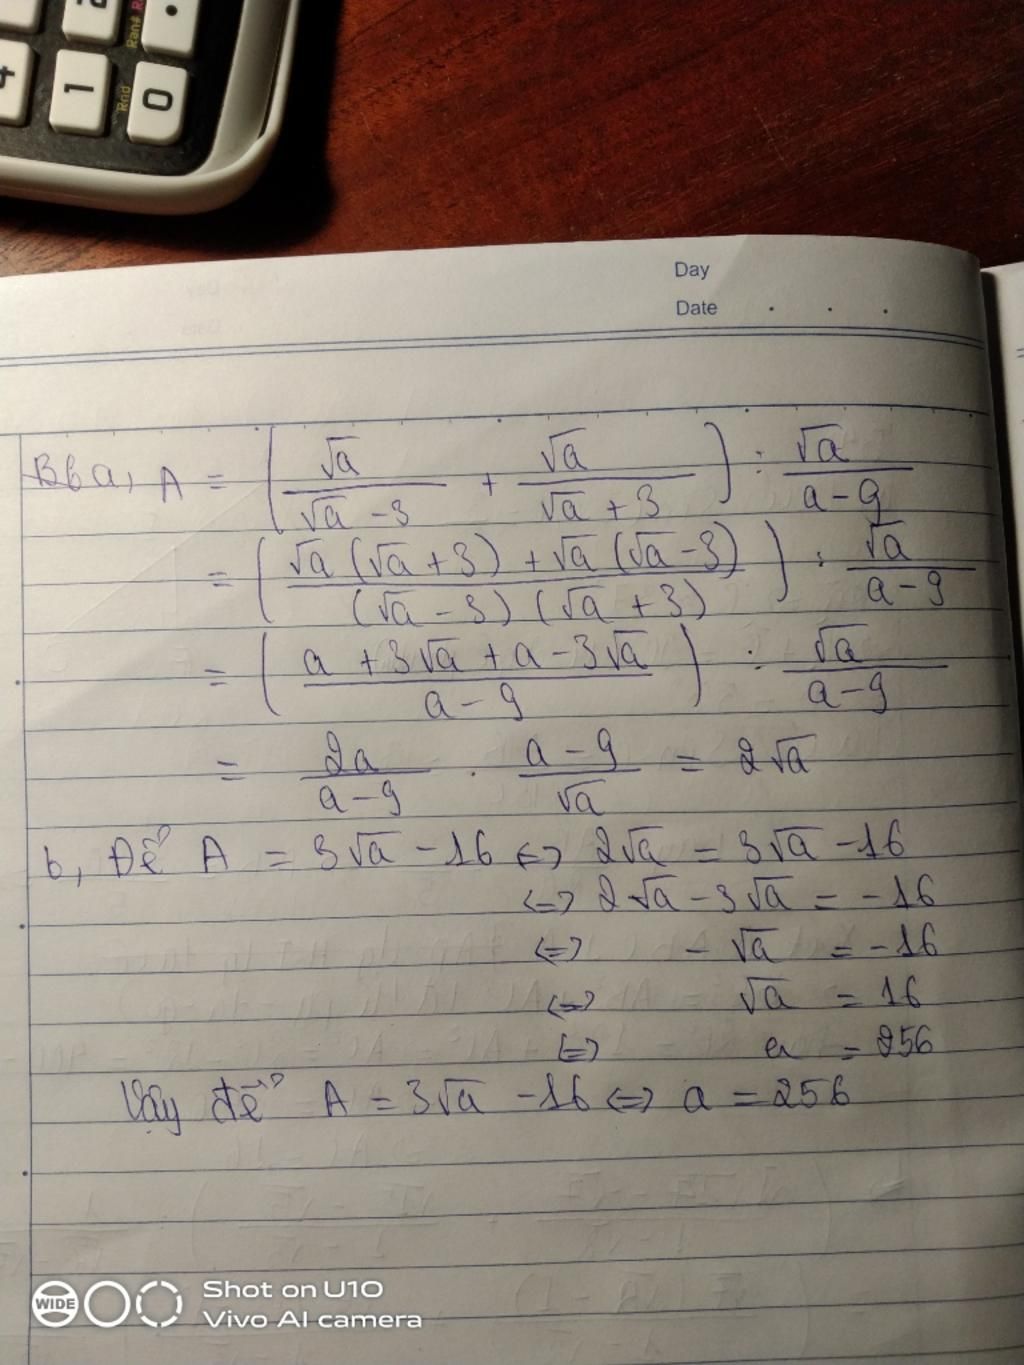 1
0
Rnd
Ran#
Day
Date . . .
B6 a, A = ( √a / (√a - 3) + √a / (√a + 3) ) : √a / (a - 9)
= ( (√a (√a + 3) + √a (√a - 3)) / ((√a - 3) (√a + 3)) ) : √a / (a - 9)
= ( (a + 3√a + a - 3√a) / (a - 9) ) : √a / (a - 9)
= 2a / (a - 9) . (a - 9) / √a = 2√a
b, Để A = 3√a - 16 <=> 2√a = 3√a - 16
<=> 2√a - 3√a = -16
<=> - √a = -16
<=> √a = 16
<=> a = 256
Vậy để A = 3√a - 16 <=> a = 256
WIDE
Shot on U10
Vivo AI camera